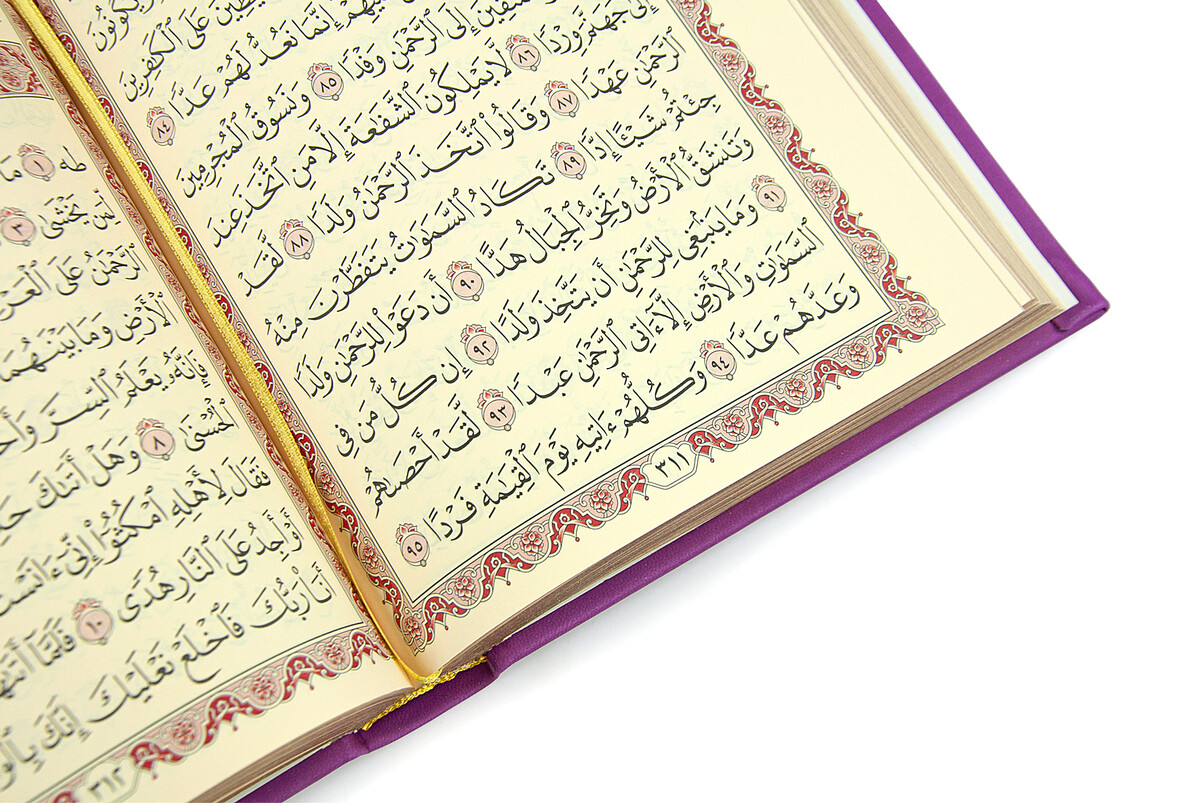 عَلَى ٱلْكَٰفِرِينَ
إِنَّمَا نَعُدُّ لَهُمْ عَدًّا ٨٤
إِلَى ٱلرَّحْمَٰنِ وَفْدًا ٨٥ وَنَسُوقُ ٱلْمُجْرِمِينَ
إِلَىٰ جَهَنَّمَ وِرْدًا ٨٦ لَّا يَمْلِكُونَ ٱلشَّفَٰعَةَ إِلَّا مَنِ ٱتَّخَذَ عِندَ
ٱلرَّحْمَٰنِ عَهْدًا ٨٧ وَقَالُوا۟ ٱتَّخَذَ ٱلرَّحْمَٰنُ وَلَدًا ٨٨ لَّقَدْ
جِئْتُمْ شَيْـًٔا إِدًّا ٨٩ تَكَادُ ٱلسَّمَٰوَٰتُ يَتَفَطَّرْنَ مِنْهُ
وَتَنشَقُّ ٱلْأَرْضُ وَتَخِرُّ ٱلْجِبَالُ هَدًّا ٩٠ أَن دَعَوْا۟ لِلرَّحْمَٰنِ وَلَدًا
٩١ وَمَا يَنۢبَغِى لِلرَّحْمَٰنِ أَن يَتَّخِذَ وَلَدًا ٩٢ إِن كُلُّ مَن فِى
ٱلسَّمَٰوَٰتِ وَٱلْأَرْضِ إِلَّآ ءَاتِى ٱلرَّحْمَٰنِ عَبْدًا ٩٣ لَّقَدْ أَحْصَىٰهُمْ
وَعَدَّهُمْ عَدًّا ٩٤ وَكُلُّهُمْ ءَاتِيهِ يَوْمَ ٱلْقِيَٰمَةِ فَرْدًا ٩٥
٣١١
طه ١ مَا
لِّمَن يَخْشَىٰ ٣
ٱلرَّحْمَٰنُ عَلَى
ٱلْأَرْضِ وَمَا بَيْنَهُمَا
فَإِنَّهُۥ يَعْلَمُ ٱلسِّرَّ
ٱلْحُسْنَىٰ ٨ وَهَلْ أَتَىٰكَ
فَقَالَ لِأَهْلِهِ ٱمْكُثُوٓا۟ إِنِّىٓ ءَانَسْتُ
أَوْ أَجِدُ عَلَى ٱلنَّارِ هُدًى ١٠ فَلَمَّآ
أَنَا۠ رَبُّكَ فَٱخْلَعْ نَعْلَيْكَ إِنَّكَ
٣١٢